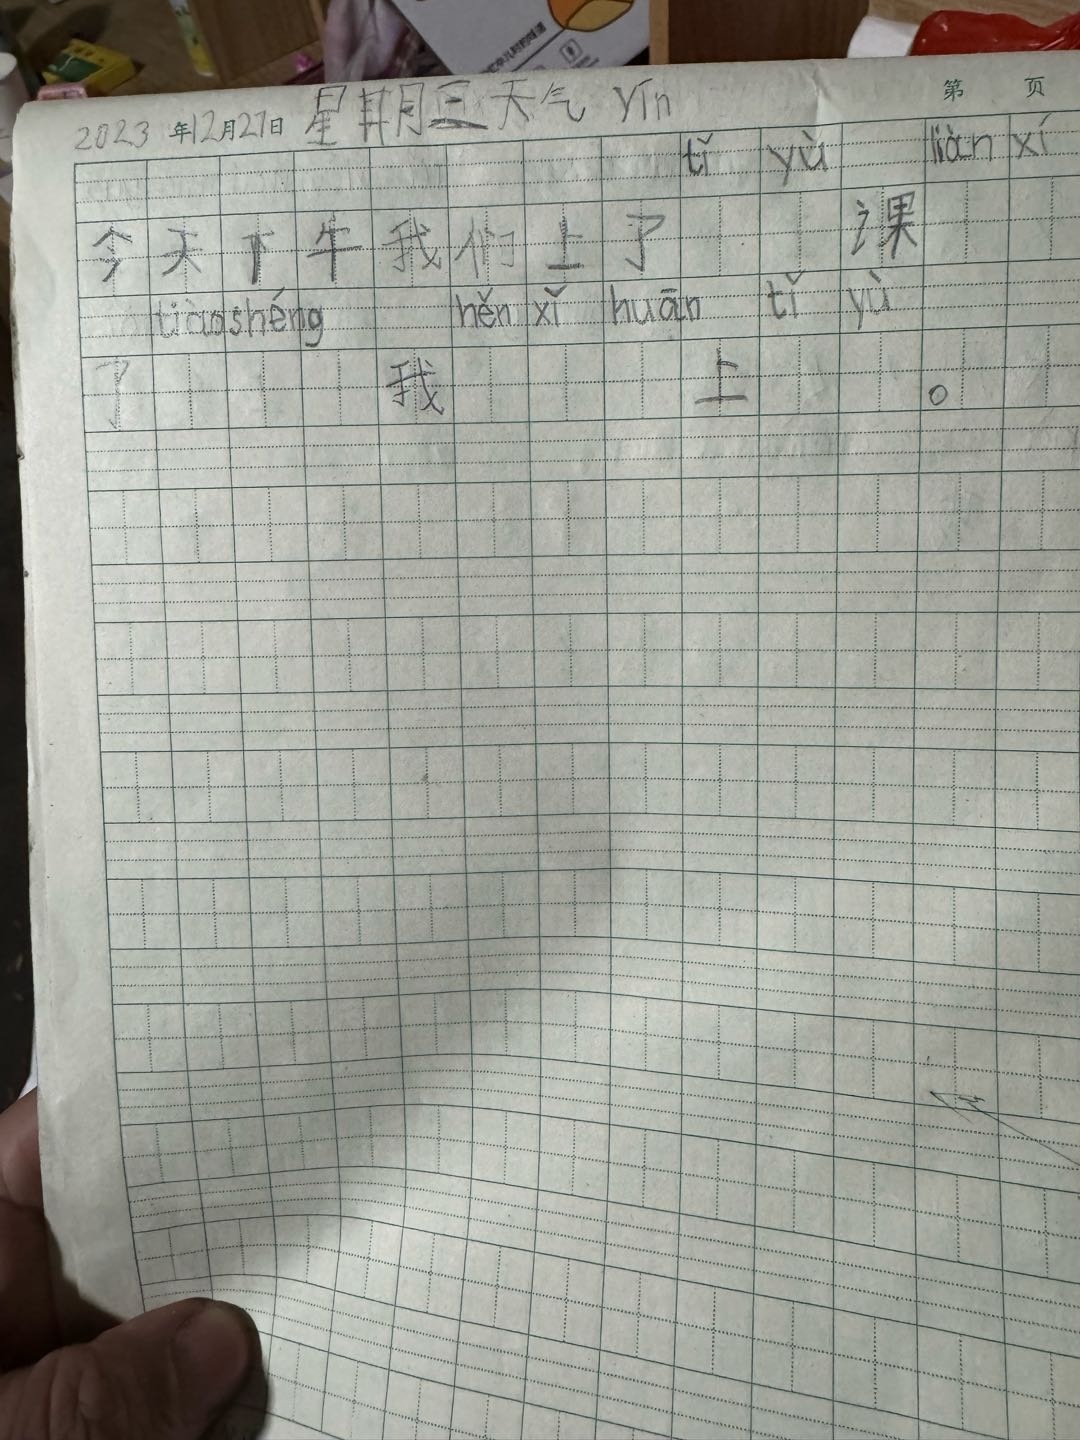 2023年12月27日 星期三 天气 yín
第 页
tǐ yù liàn xí
今天下午我们上了 课
tiàoshéng hěn xǐ huān tǐ yù
了 我 上 。